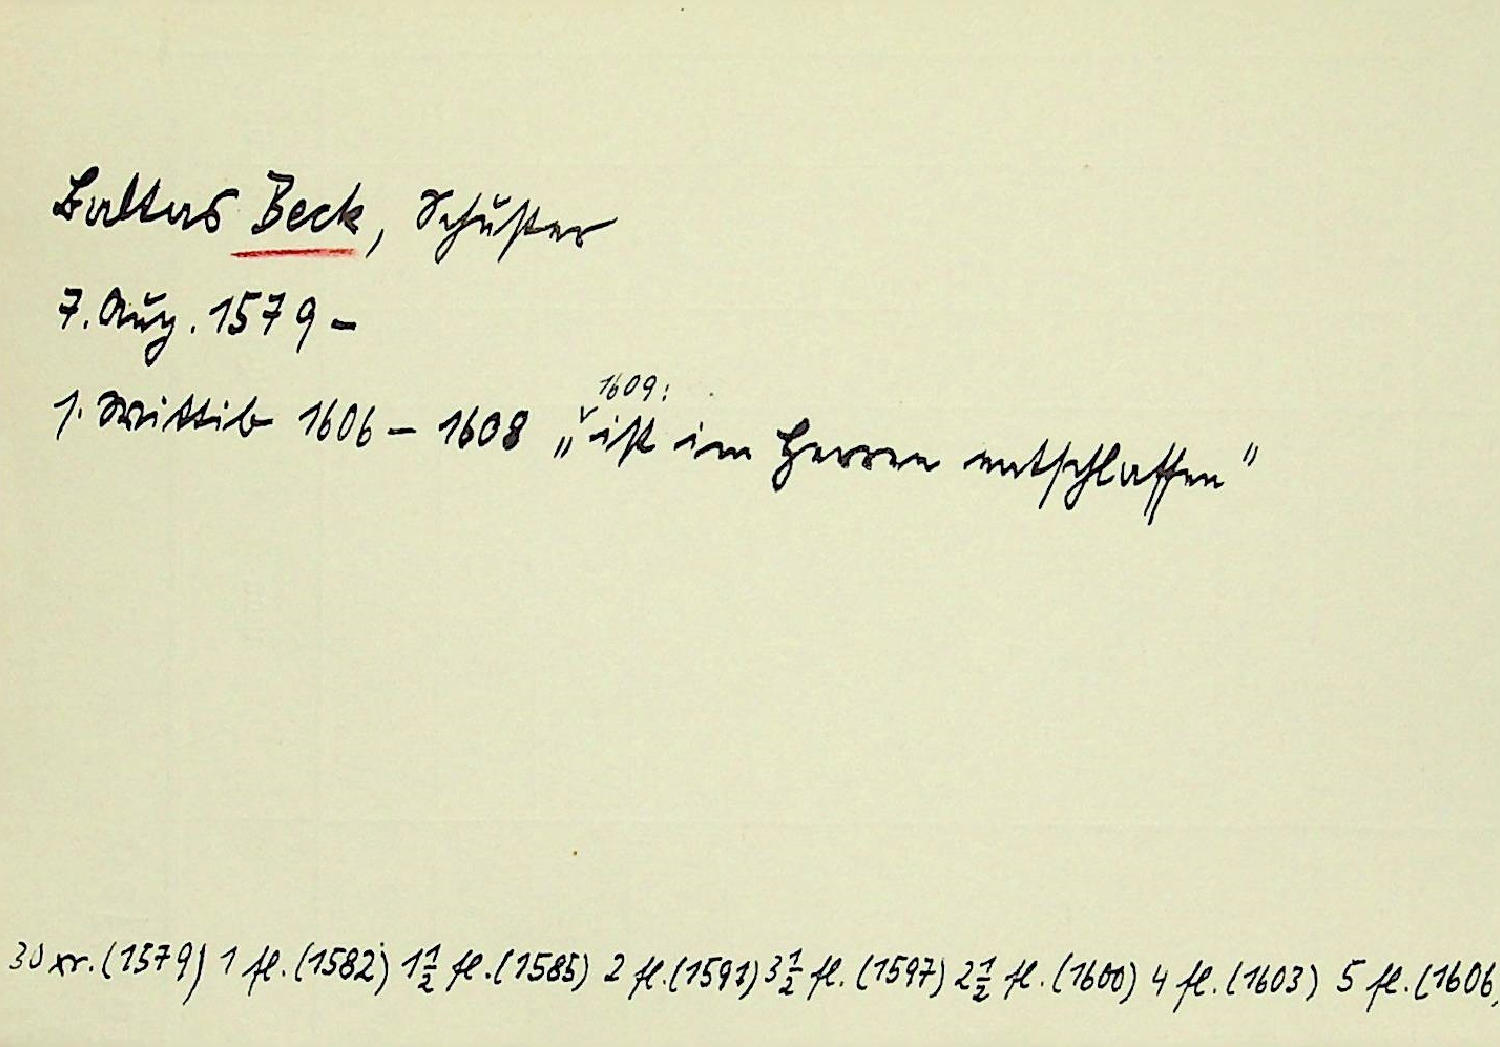 Baltas Beck, Schuster
7. Aug. 1579 –
1. Wittib 1606 – 1608 „1609: ist im Herren entschlaffen"
30 xr. (1579) 1 fl. (1582) 1½ fl. (1585) 2 fl. (1591) 3½ fl. (1597) 2½ fl. (1600) 4 fl. (1603) 5 fl. (1606)